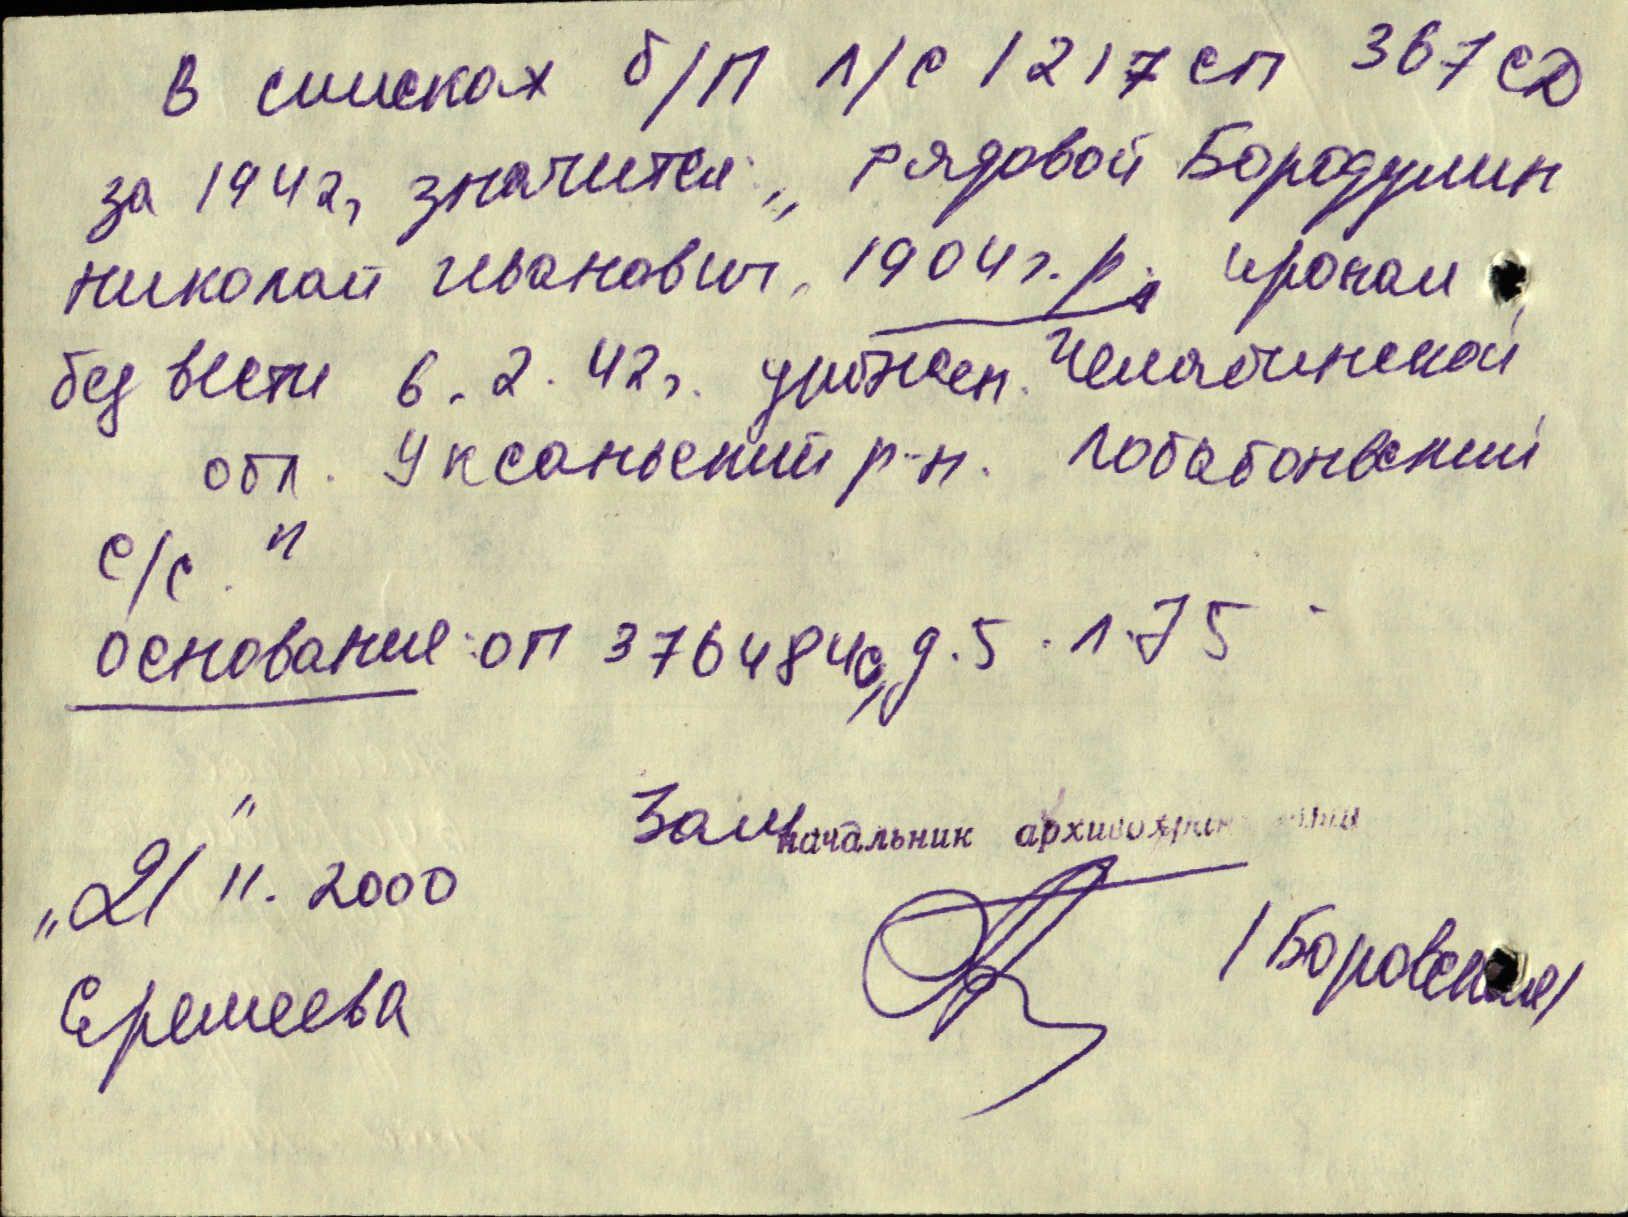 В списках б/п л/с 1217 сп 367 СД
за 1942г, значится: „рядовой Бородулин
Николай Иванович, 1904 г.р., пропал
без вести 6.2.42г. урожен. Челябинской
обл. Уксаньский р-н. Лобабоньский
с/с."
основание: оп 376484с, д.5. л.75
Зам начальник архивохранилища
„21" 11. 2000
/Боровская/
Еремеева